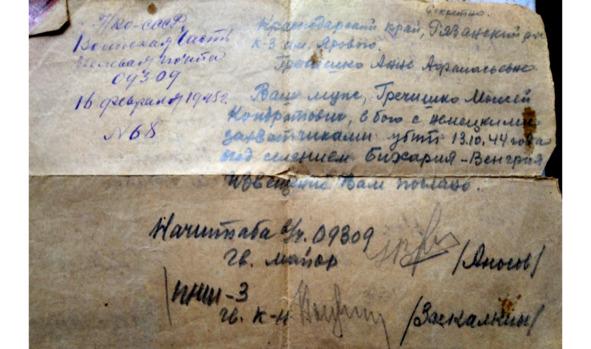 НКО-СССР
Воинская часть
полевая почта
09309
16 февраля 1945г.
№68
Секретно.
Краснодарский край, Рязанский р-н
к-з им. Ярового.
Гречишко Анне Афанасьевне
Ваш муж, Гречишко Моисей
Кондратович, в бою с немецкими
захватчиками убит 13.10.44 года
под селением Бихария-Венгрия
Извещение Вам послано.
Начштаба в/ч. 09309
гв. майор /Аносов/
/ПНШ-3
гв. к-н /Заскалкин/